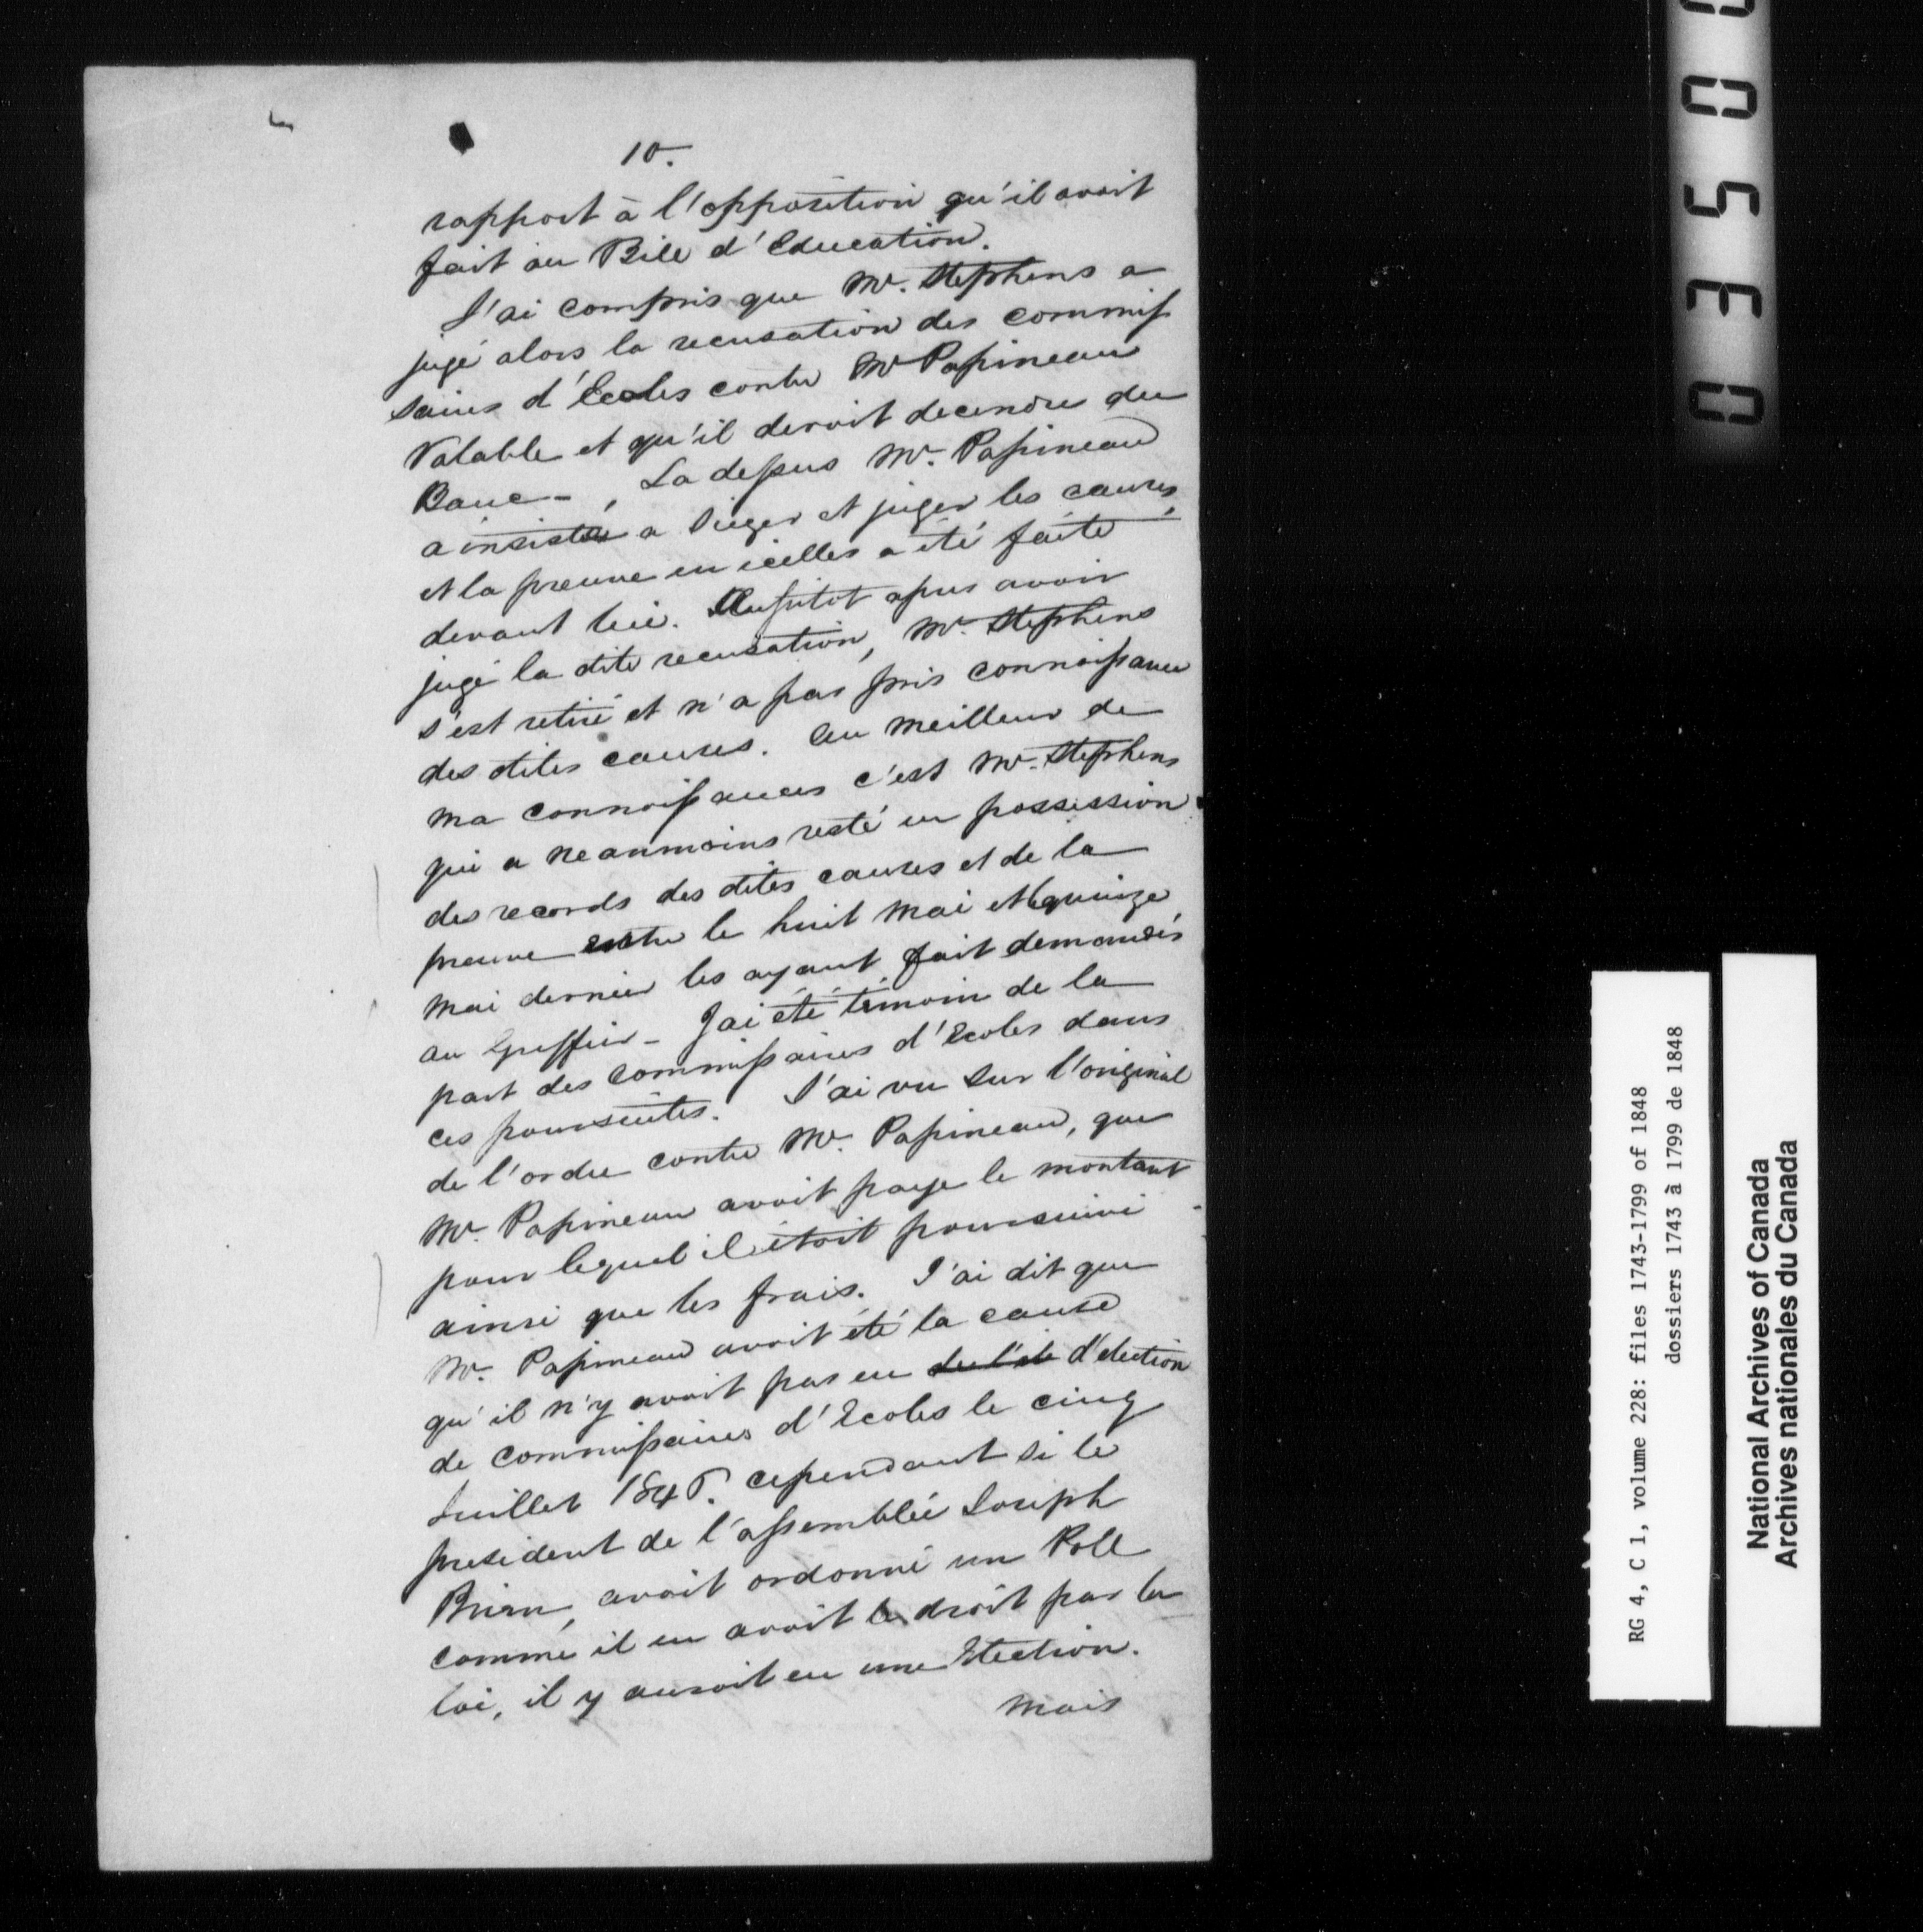 10.
rapport à l'opposition qu'il avoit
fait au Bill d'Education.
J'ai compris que Mr. Stephens a
jugé alors la recusation des commis
saires d'Ecoles contre Mr Papineau
Valable et qu'il devoit decendre du
Banc -, La dessus Mr. Papineau
a insisté a sieger et juger les causes,
et la preuve en icelles a été faite
devant lui. Aussitot apres avoir
jugé la dite recusation, Mr. Stephens
s'est retiré et n'a pas pris connoissance
des dites causes. Au meilleur de
ma connoissances c'est Mr. Stephens
qui a neanmoins resté en possession
des records des dites causes et de la
preuve entre le huit Mai et quinze
Mai dernier les ayant fait demandés
au Greffier - J'ai été témoin de la
part des commissaires d'Ecoles dans
ces poursuites. J'ai vu sur l'original
de l'ordre contre Mr. Papineau, que
Mr. Papineau avoit paye le montant
pour lequel il étoit poursuivi
ainsi que les frais. J'ai dit que
Mr. Papineau avoit été la cause
qu'il n'y avoit pas eu d'election
de commissaires d'Ecoles le cinq
Juillet 1846. cependant si le
president de l'assemblée Joseph
Brien, avoit ordonné un Poll
comme il en avoit le droit par la
loi, il y auroit eu une Election.
Mais
0350
RG 4, C 1, volume 228: files 1743-1799 of 1848
dossiers 1743 à 1799 de 1848
National Archives of Canada
Archives nationales du Canada